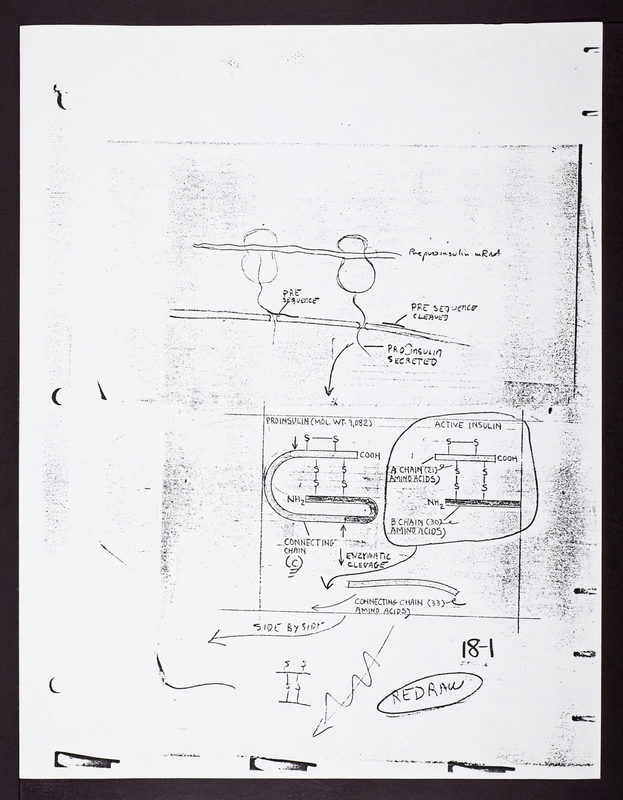 Preproinsulin mRNA
PRE
SEQUENCE
PRE SEQUENCE
CLEAVED
PROINSULIN
SECRETED
PROINSULIN (MOL. WT. 9,082)
ACTIVE INSULIN
S S
S S
COOH
COOH
A CHAIN (21)
AMINO ACIDS)
S S
S S
S S
S S
NH2
NH2
B CHAIN (30)
AMINO ACIDS)
CONNECTING
CHAIN
(C)
ENZYMATIC
CLEVAGE
CONNECTING CHAIN (33)
AMINO ACIDS)
SIDE BY SIDE
18-1
S S
S S
REDRAW